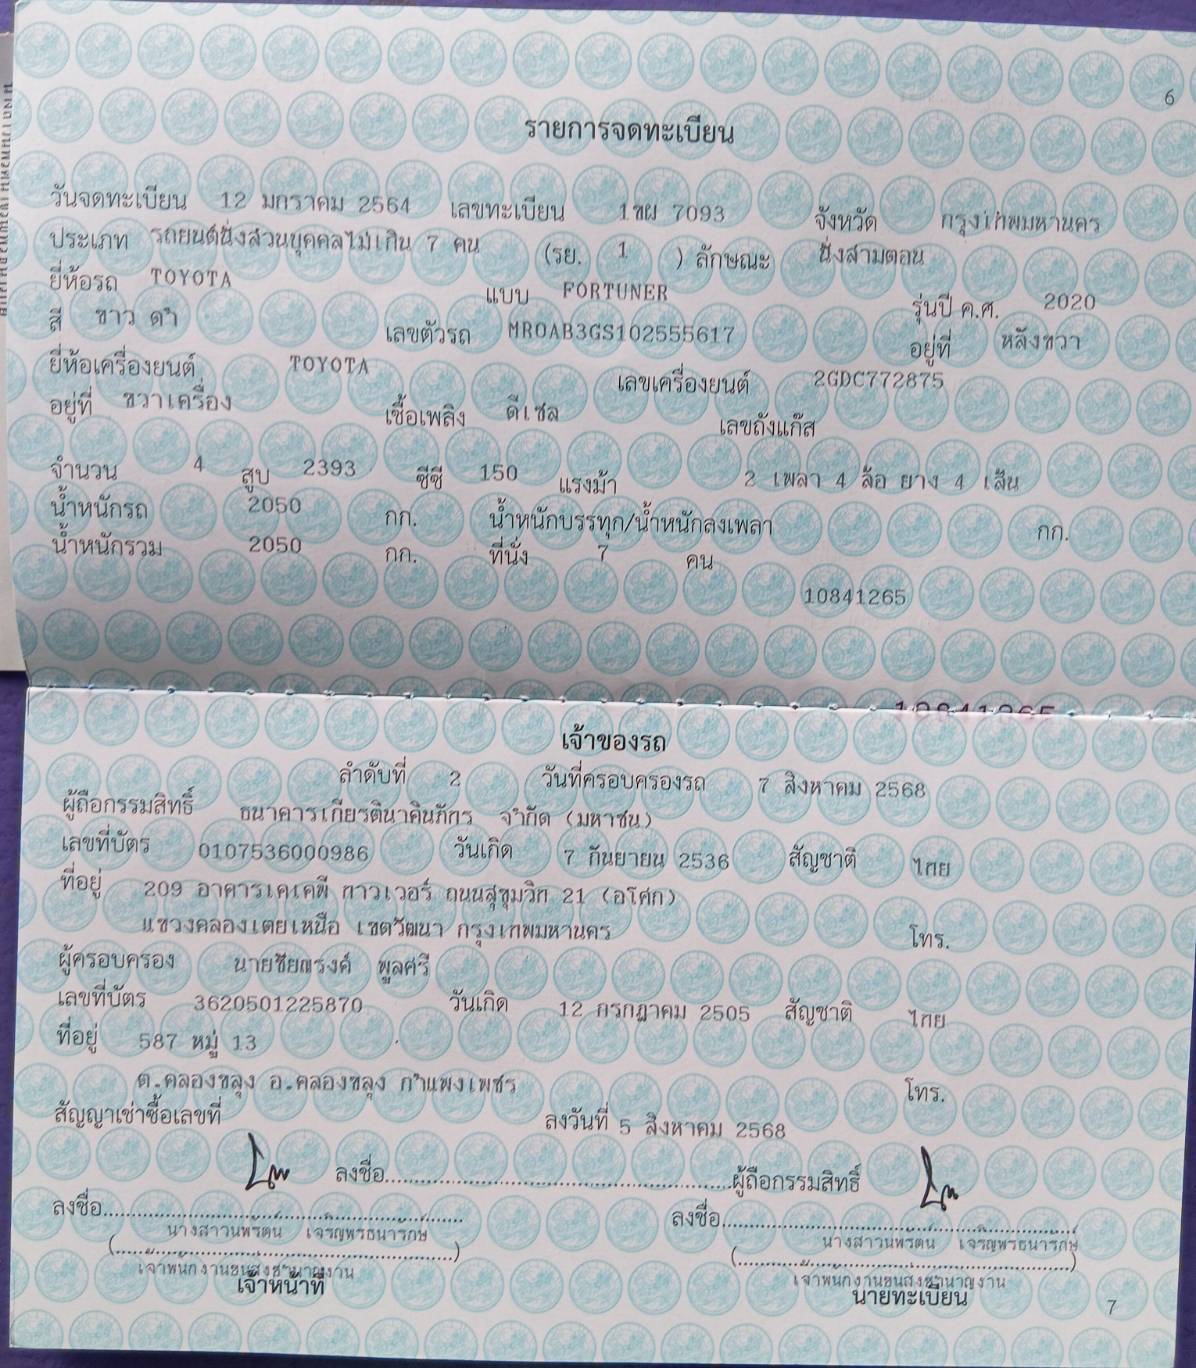 6
รายการจดทะเบียน
วันจดทะเบียน 12 มกราคม 2564 เลขทะเบียน 1ขผ 7093 จังหวัด กรุงเทพมหานคร
ประเภท รถยนต์นั่งส่วนบุคคลไม่เกิน 7 คน (รย. 1 ) ลักษณะ นั่งสามตอน
ยี่ห้อรถ TOYOTA แบบ FORTUNER รุ่นปี ค.ศ. 2020
สี ขาว ดำ เลขตัวรถ MR0AB3GS102555617 อยู่ที่ หลังขวา
ยี่ห้อเครื่องยนต์ TOYOTA เลขเครื่องยนต์ 2GDC772875
อยู่ที่ ขวาเครื่อง เชื้อเพลิง ดีเซล เลขถังแก๊ส
จำนวน 4 สูบ 2393 ซีซี 150 แรงม้า 2 เพลา 4 ล้อ ยาง 4 เส้น
น้ำหนักรถ 2050 กก. น้ำหนักบรรทุก/น้ำหนักลงเพลา กก.
น้ำหนักรวม 2050 กก. ที่นั่ง 7 คน
10841265
เจ้าของรถ
ลำดับที่ 2 วันที่ครอบครองรถ 7 สิงหาคม 2568
ผู้ถือกรรมสิทธิ์ ธนาคารเกียรตินาคินภัทร จำกัด (มหาชน)
เลขที่บัตร 0107536000986 วันเกิด 7 กันยายน 2536 สัญชาติ ไทย
ที่อยู่ 209 อาคารเคเคพี ทาวเวอร์ ถนนสุขุมวิท 21 (อโศก)
แขวงคลองเตยเหนือ เขตวัฒนา กรุงเทพมหานคร โทร.
ผู้ครอบครอง นายชัยณรงค์ พูลศรี
เลขที่บัตร 3620501225870 วันเกิด 12 กรกฎาคม 2505 สัญชาติ ไทย
ที่อยู่ 587 หมู่ 13
ต.คลองขลุง อ.คลองขลุง กำแพงเพชร โทร.
สัญญาเช่าซื้อเลขที่ ลงวันที่ 5 สิงหาคม 2568
ลงชื่อ........................................ผู้ถือกรรมสิทธิ์
ลงชื่อ........................................ ลงชื่อ........................................
นางสาวนพรัตน์ เจริญพรธนารักษ์ นางสาวนพรัตน์ เจริญพรธนารักษ์
(........................................) (........................................)
เจ้าพนักงานขนส่งชำนาญงาน เจ้าพนักงานขนส่งชำนาญงาน
เจ้าหน้าที่ นายทะเบียน
7